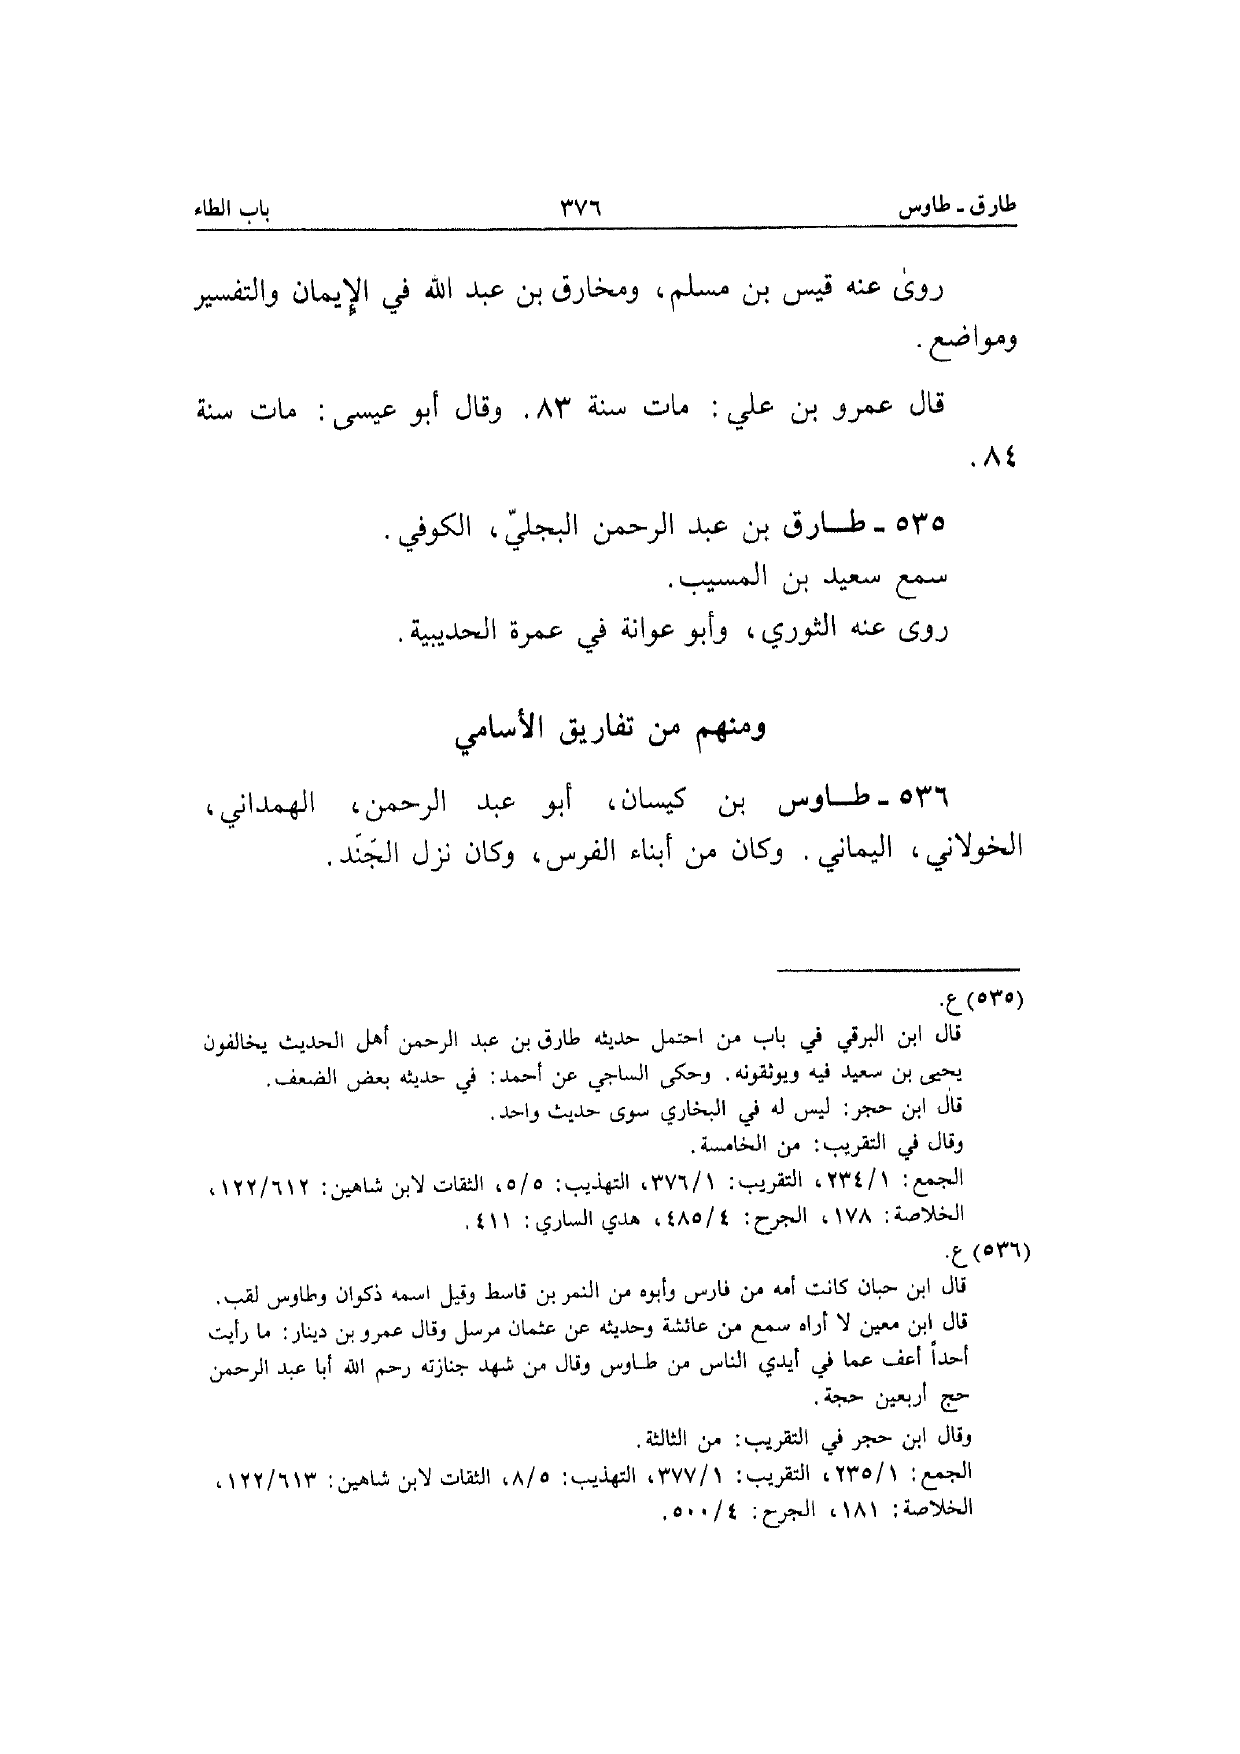 طارق ـ طاوس ٣٧٦ باب الطاء
روىٰ عنه قيس بن مسلم، ومخارق بن عبد الله في الإيمان والتفسير
ومواضع.
قال عمرو بن علي: مات سنة ٨٣. وقال أبو عيسى: مات سنة
٨٤.
٥٣٥ ـ طارق بن عبد الرحمن البجليّ، الكوفي.
سمع سعيد بن المسيب.
روى عنه الثوري، وأبو عوانة في عمرة الحديبية.
ومنهم من تفاريق الأسامي
٥٣٦ ـ طاوس بن كيسان، أبو عبد الرحمن، الهمداني،
الخولاني، اليماني. وكان من أبناء الفرس، وكان نزل الجَنَد.
(٥٣٥) ع.
قال ابن البرقي في باب من احتمل حديثه طارق بن عبد الرحمن أهل الحديث يخالفون
يحيى بن سعيد فيه ويوثقونه. وحكى الساجي عن أحمد: في حديثه بعض الضعف.
قال ابن حجر: ليس له في البخاري سوى حديث واحد.
وقال في التقريب: من الخامسة.
الجمع: ٢٣٤/١، التقريب: ٣٧٦/١، التهذيب: ٥/٥، الثقات لابن شاهين: ١٢٢/٦١٢،
الخلاصة: ١٧٨، الجرح: ٤٨٥/٤، هدي الساري: ٤١١.
(٥٣٦) ع.
قال ابن حبان كانت أمه من فارس وأبوه من النمر بن قاسط وقيل اسمه ذكوان وطاوس لقب.
قال ابن معين لا أراه سمع من عائشة وحديثه عن عثمان مرسل وقال عمرو بن دينار: ما رأيت
أحداً أعف عما في أيدي الناس من طاوس وقال من شهد جنازته رحم الله أبا عبد الرحمن
حج أربعين حجة.
وقال ابن حجر في التقريب: من الثالثة.
الجمع: ٢٣٥/١، التقريب: ٣٧٧/١، التهذيب: ٨/٥، الثقات لابن شاهين: ١٢٢/٦١٣،
الخلاصة: ١٨١، الجرح: ٥٠٠/٤.